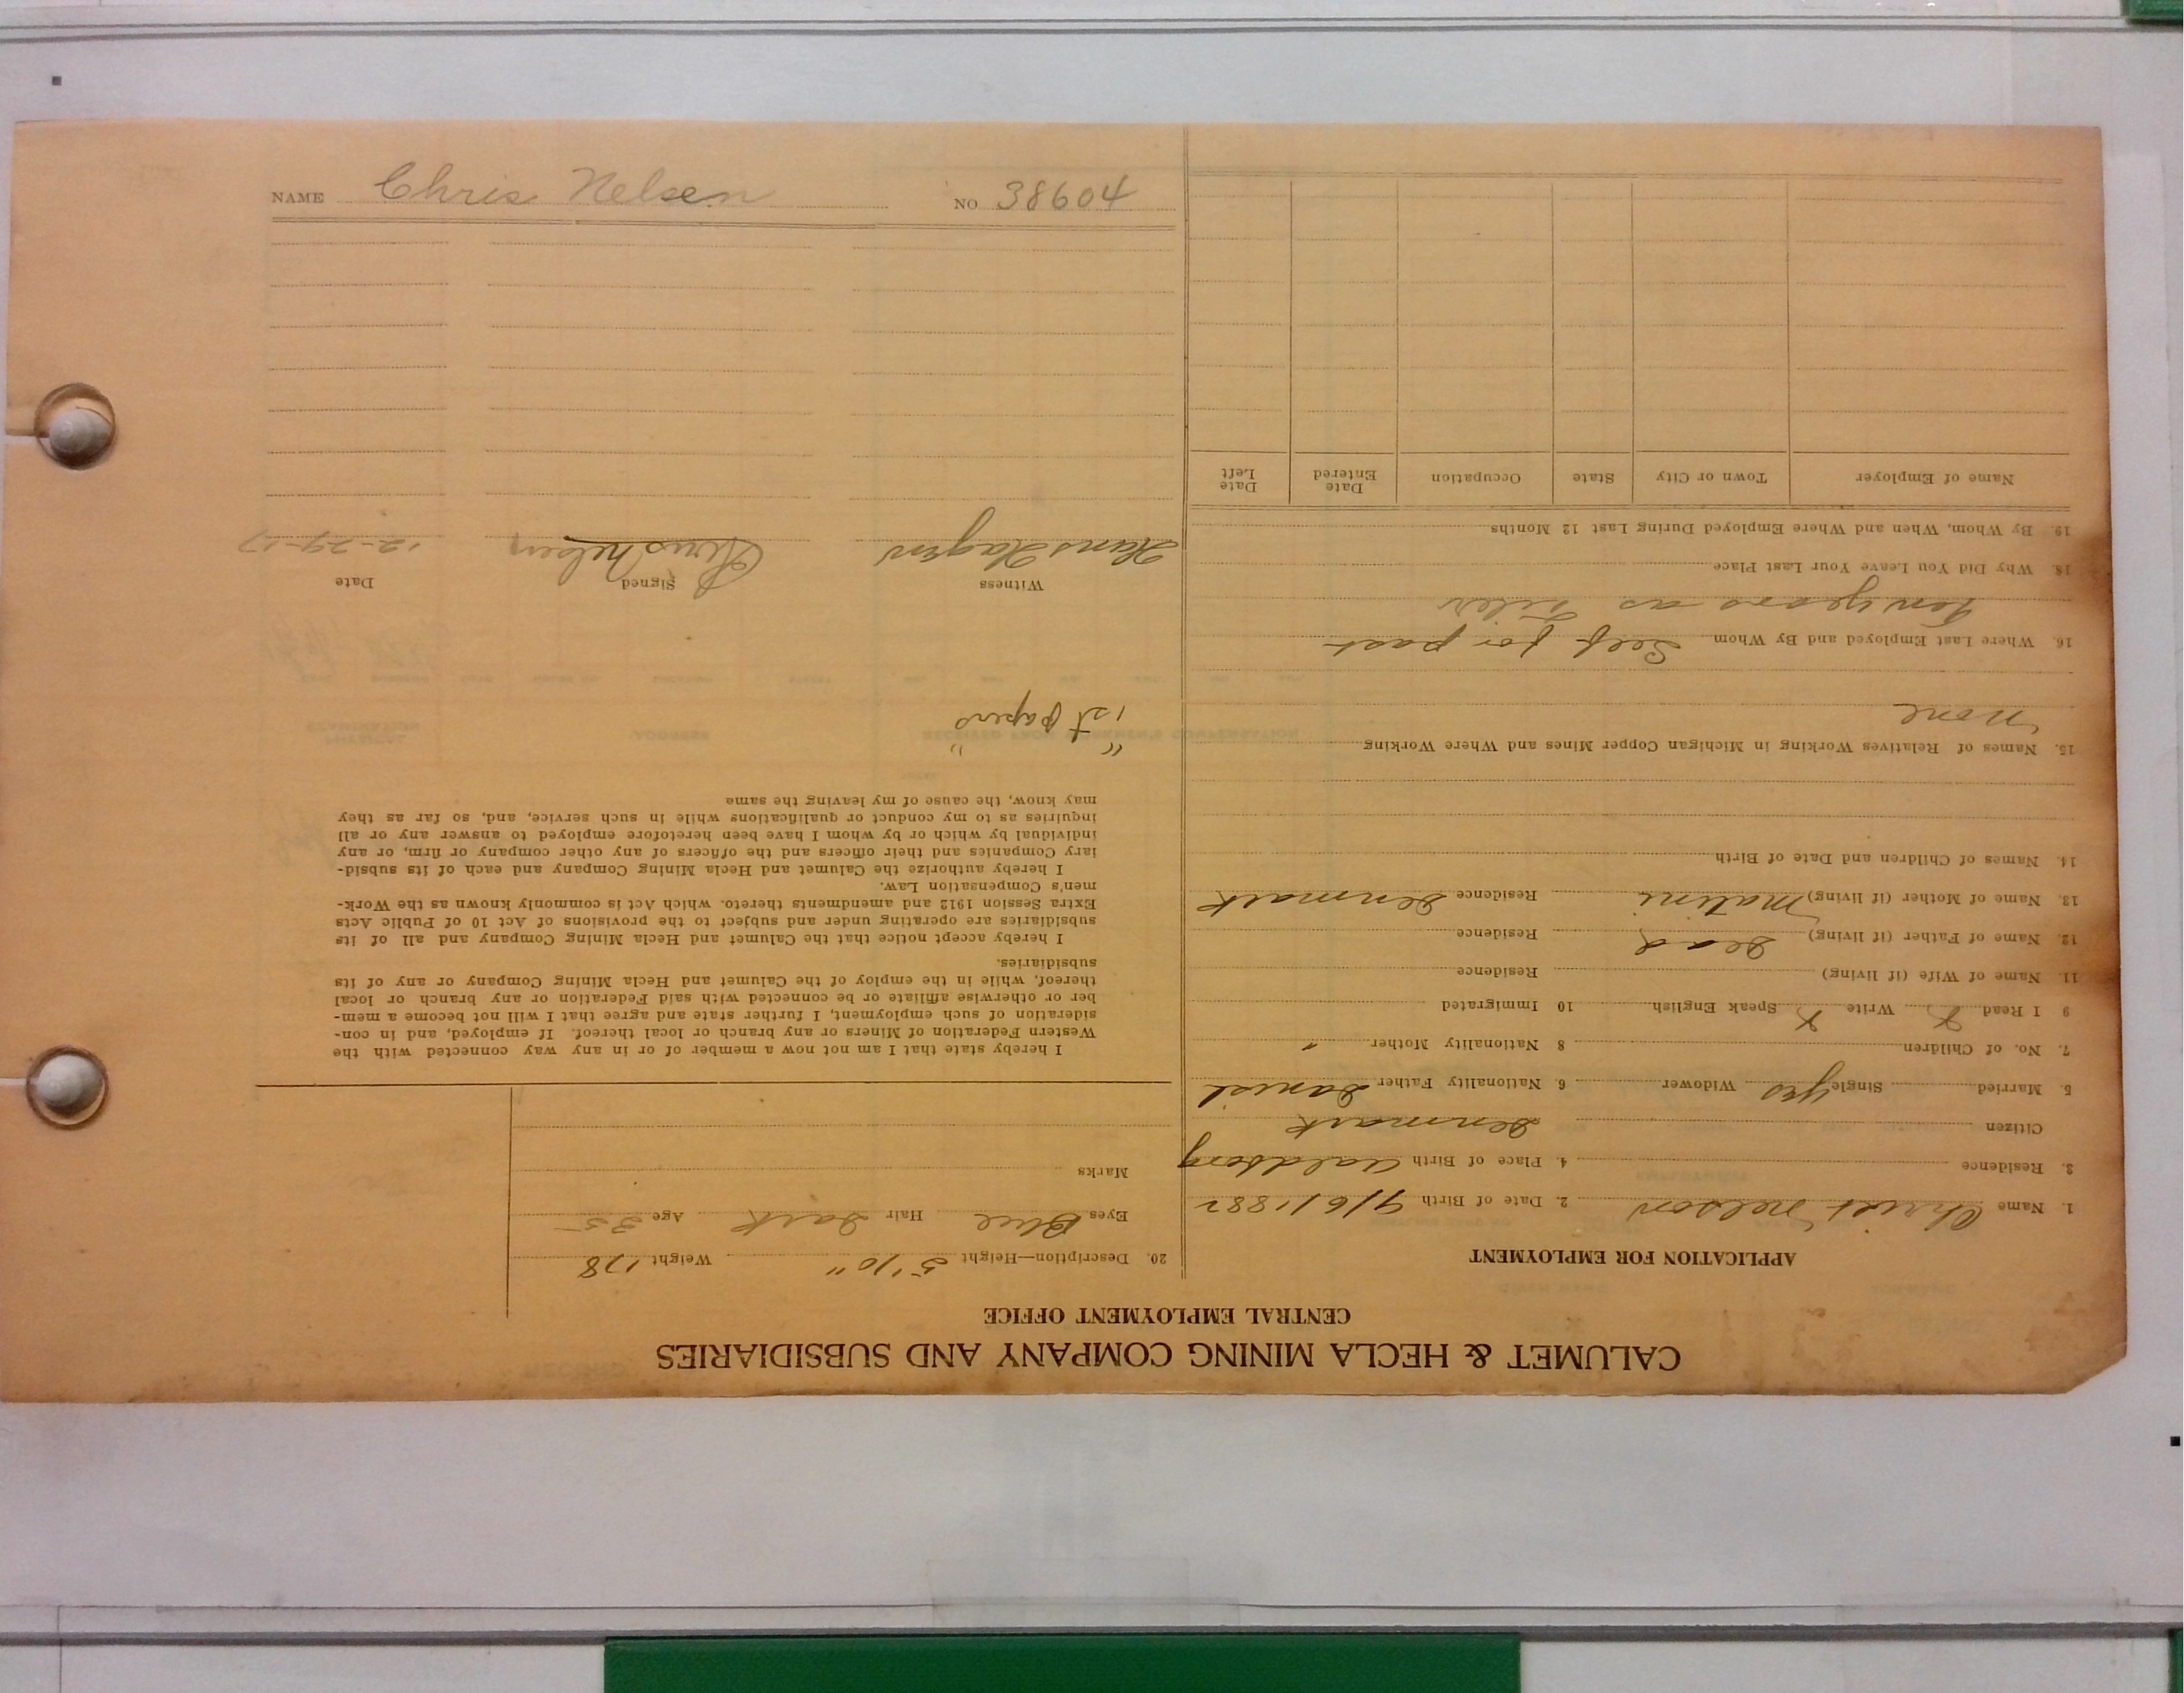 CALUMET & HECLA MINING COMPANY AND SUBSIDIARIES
CENTRAL EMPLOYMENT OFFICE
APPLICATION FOR EMPLOYMENT
1. Name Christ Nelson 2. Date of Birth 9/6/1882
3. Residence 4. Place of Birth Aalborg
Citizen Denmark
5. Married Single yes Widower 6. Nationality Father Danish
7. No. of Children 8 Nationality Mother "
9 I Read X Write X Speak English 10 Immigrated
11. Name of Wife (if living) Residence
12. Name of Father (if living) Dead Residence
13. Name of Mother (if living) Matini Residence Denmark
14. Names of Children and Date of Birth
15. Names of Relatives Working in Michigan Copper Mines and Where Working
None
16. Where Last Employed and By Whom Self for past
Ten years as
18. Why Did You Leave Your Last Place
19. By Whom, When and Where Employed During Last 12 Months
Name of Employer Town or City State Occupation Date Entered Date Left
20. Description—Height 5'10" Weight 178
Eyes Blue Hair Dark Age 35
Marks
I hereby state that I am not now a member of or in any way connected with the
Western Federation of Miners or any branch or local thereof. If employed, and in con-
sideration of such employment, I further state and agree that I will not become a mem-
ber or otherwise affiliate or be connected with said Federation or any branch or local
thereof, while in the employ of the Calumet and Hecla Mining Company or any of its
subsidiaries.
I hereby accept notice that the Calumet and Hecla Mining Company and all of its
subsidiaries are operating under and subject to the provisions of Act 10 of Public Acts
Extra Session 1912 and amendments thereto. which Act is commonly known as the Work-
men's Compensation Law.
I hereby authorize the Calumet and Hecla Mining Company and each of its subsid-
iary Companies and their officers and the officers of any other company or firm, or any
individual by which or by whom I have been heretofore employed to answer any or all
inquiries as to my conduct or qualifications while in such service, and, so far as they
may know, the cause of my leaving the same
" "
1st papers
Witness Signed Date
Hans Hagen Chris Nelsen 12-29-17
NAME Chris Nelsen NO 38604